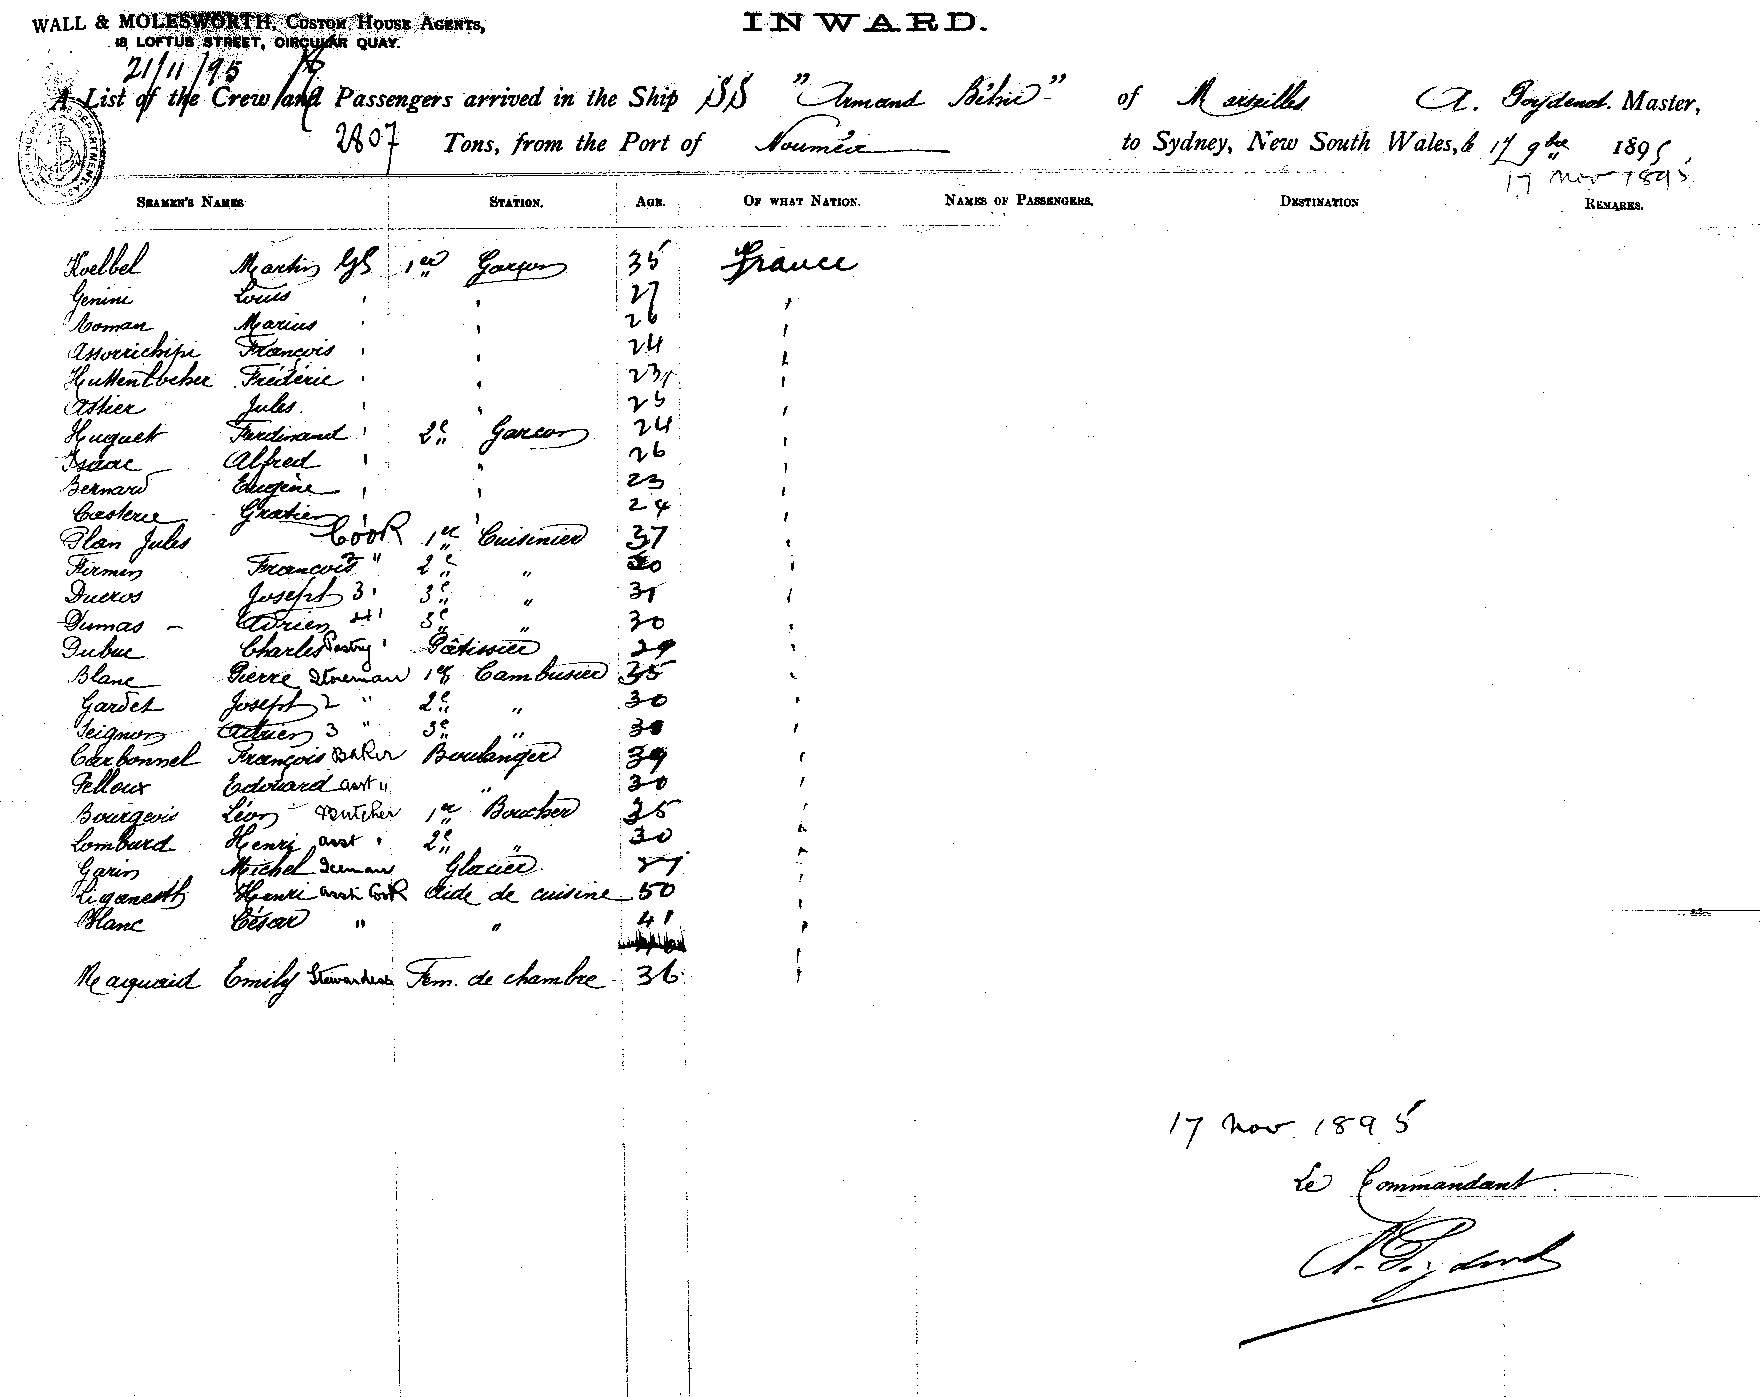 WALL & MOLESWORTH, CUSTOM HOUSE AGENTS,
18 LOFTUS STREET, CIRCULAR QUAY.
INWARD.
21/11/95
A List of the Crew and Passengers arrived in the Ship SS "Armand Béhic" of Marseilles A. Poydenot. Master,
2807 Tons, from the Port of Nouméa to Sydney, New South Wales, le 17 9bre 1895.
17 Nov 1895
SEAMEN'S NAMES STATION. AGE. OF WHAT NATION. NAMES OF PASSENGERS. DESTINATION REMARKS.
Koelbel Martin GS 1er Garçon 35 France
Genini Louis ' ' 27 '
Roman Marius ' ' 26 '
François ' ' 24 '
Huttenlocher Frédéric ' ' 23 '
Astier Jules ' ' 25 '
Huguet Ferdinand ' 2e Garcon 24 '
Isaac Alfred ' ' 26 '
Bernard Eugène ' ' 23 '
Casterie Gratien ' ' 24 '
Plan Jules Cook 1er Cuisinier 37 '
Firmin François 2 " 2e " 30 '
Ducros Joseph 3 ' 3e " 31 '
Dumas - Adrien 4 ' 3e " 30 '
Dubuc Charles Pastry ' Pâtissier 29 '
Blanc Pierre Storeman 1er Cambusier 35 '
Gardet Joseph 2 " 2e " 30 '
Teignon Adrien 3 " 3e " 30 '
Carbonnel François Baker Boulanger 39 '
Felloux Edouard asst " " 30 '
Bourgeois Léon Butcher 1er Boucher 35 '
Lombard Henri asst ' 2e " 30 '
Garin Michel Iceman Glacier 27 '
Henri asst Cook Aide de cuisine 50 '
Blanc César " " 41 '
Macquaid Emily Stewardess Fem. de chambre 36 '
17 Nov 1895
Le Commandant
A. Poydenot